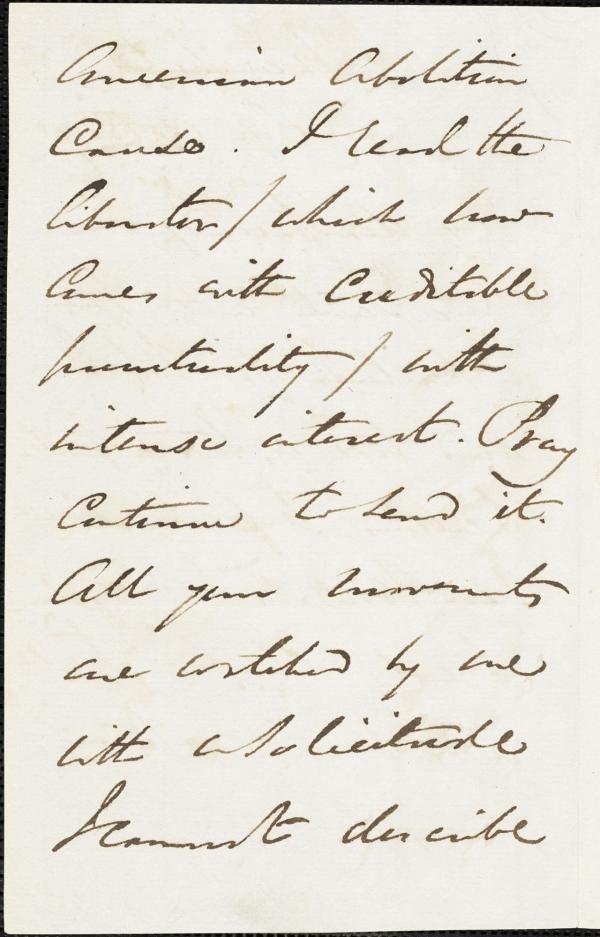 American Abolition
Cause. I read the
Liberator / which now
comes with creditable
punctuality / with
intense interest. Pray
continue to send it.
All your movements
are watched by me
with a solicitude
I cannot describe